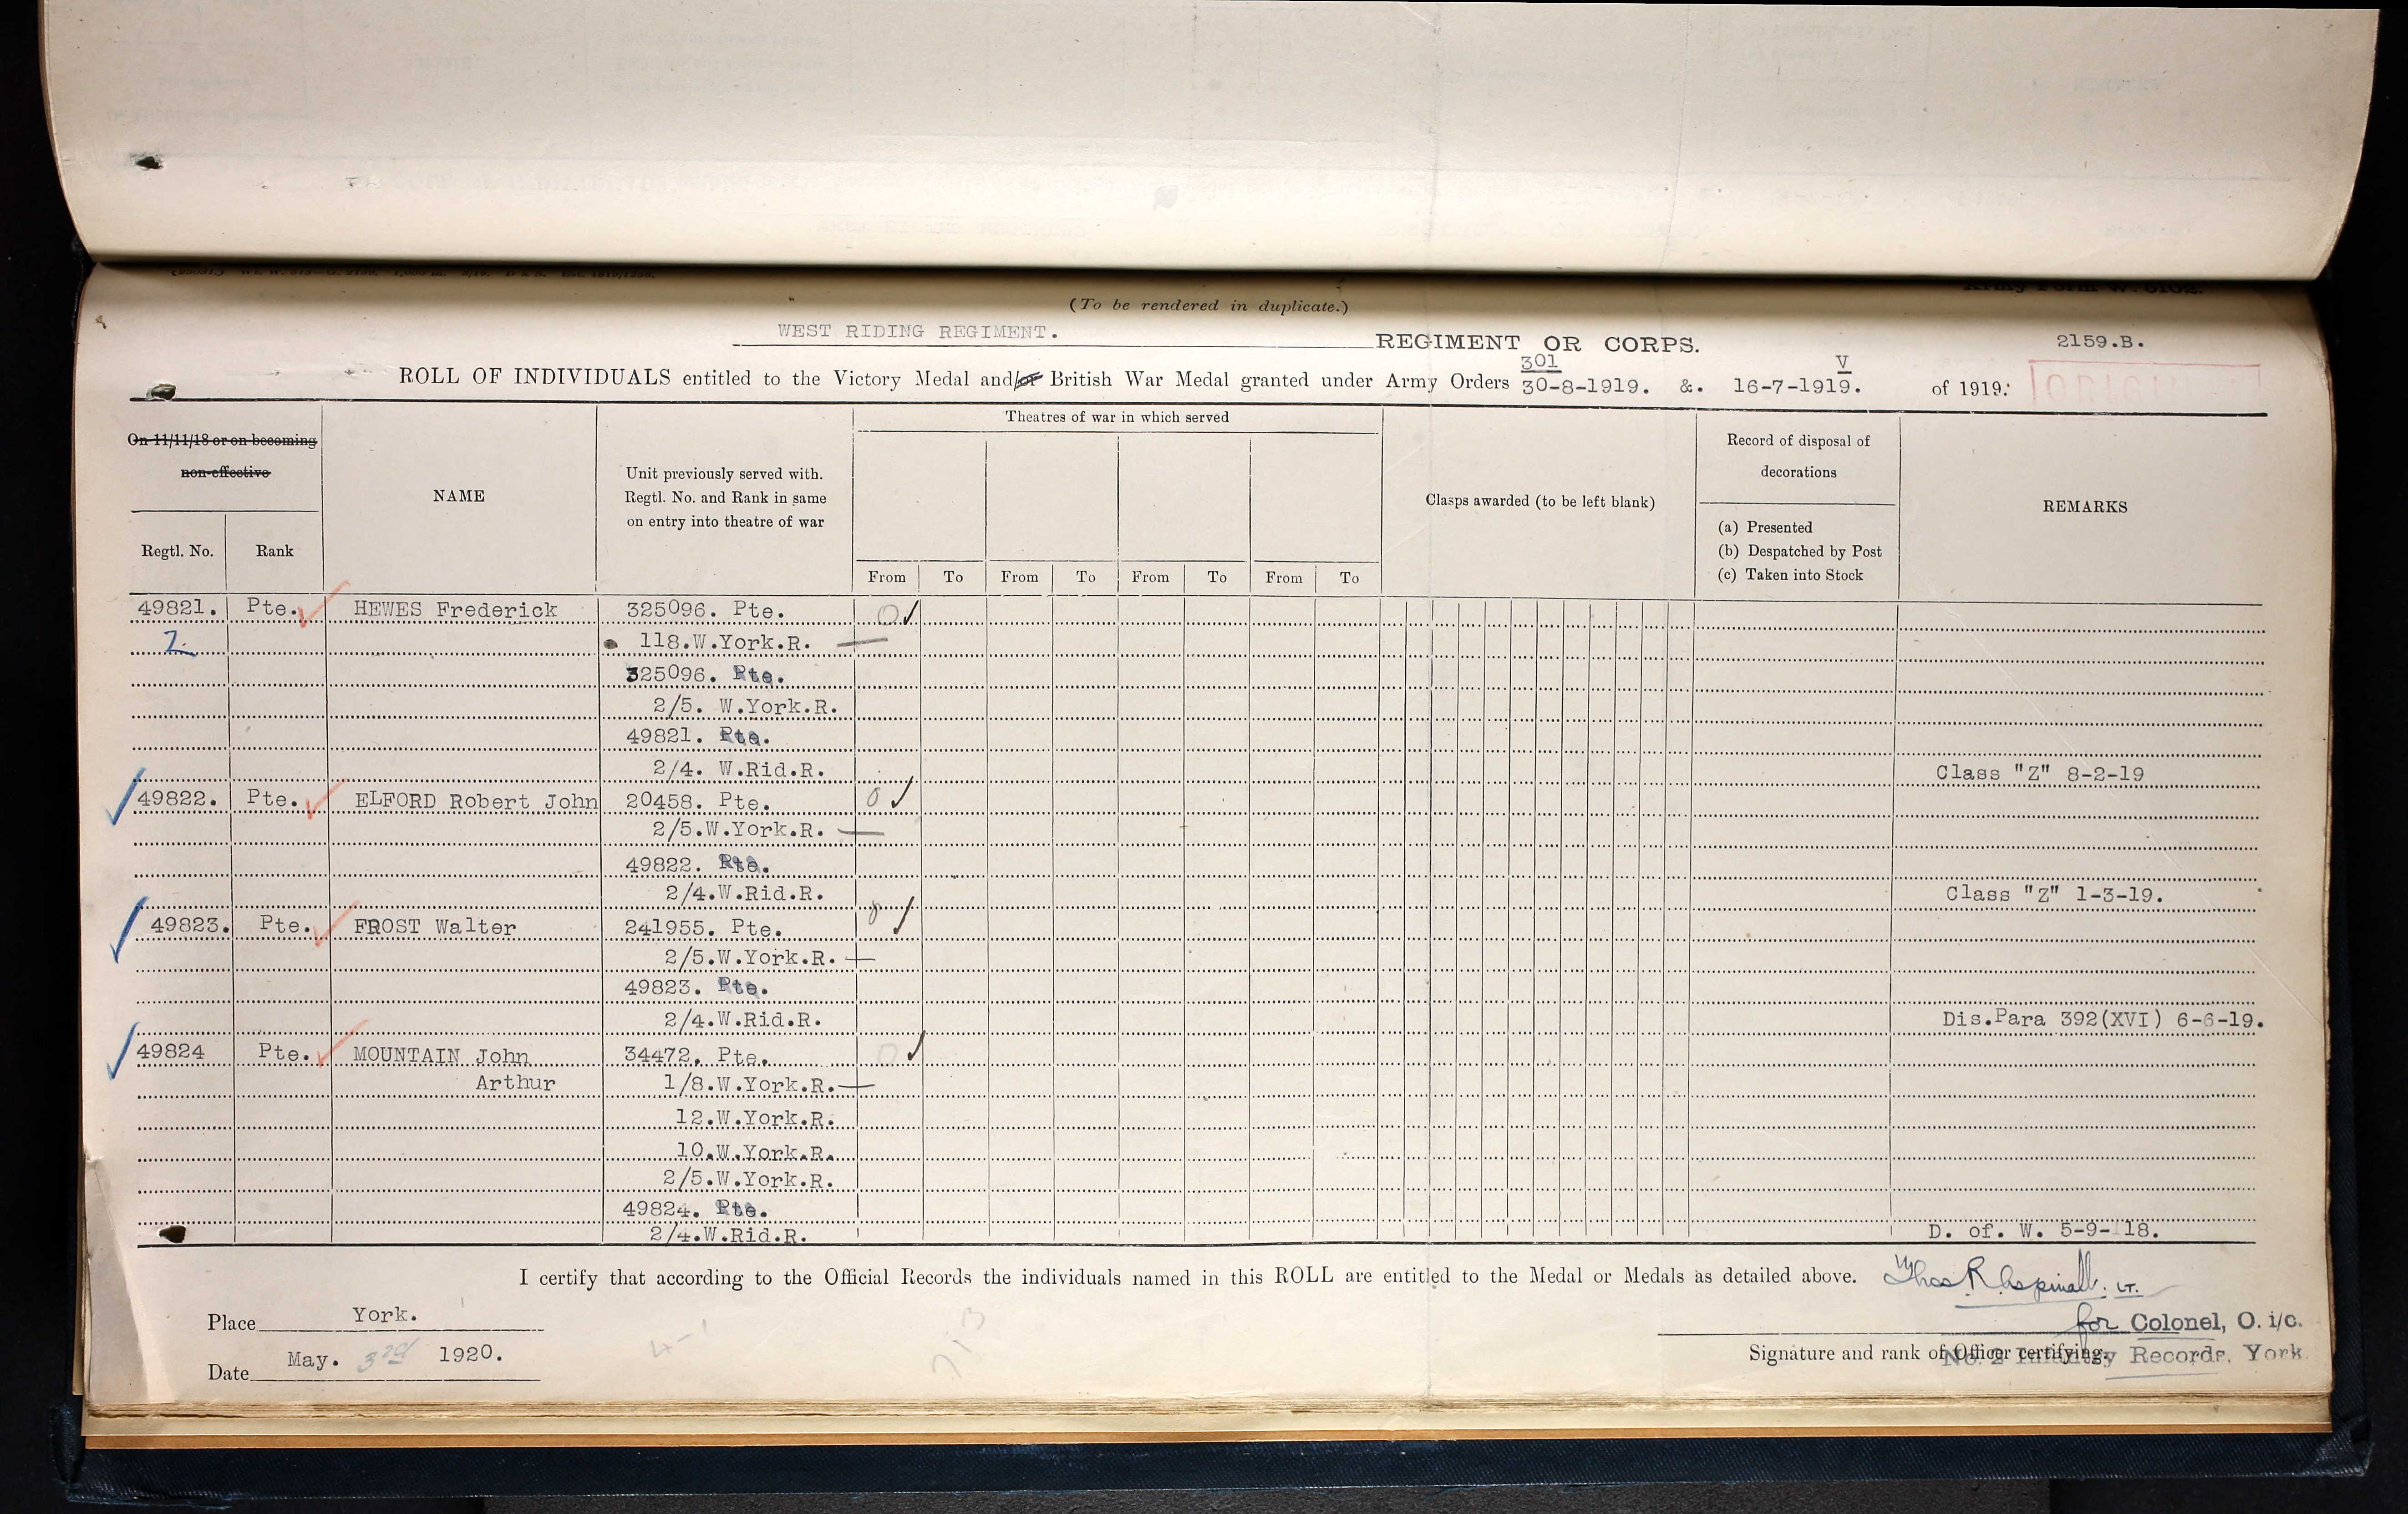 (To be rendered in duplicate.)
WEST RIDING REGIMENT. REGIMENT OR CORPS. 2159.B.
301 V
ROLL OF INDIVIDUALS entitled to the Victory Medal and/or British War Medal granted under Army Orders 30-8-1919. &. 16-7-1919. of 1919.
Theatres of war in which served
On 11/11/18 or on becoming
non-effective
Regtl. No. Rank
NAME
Unit previously served with.
Regtl. No. and Rank in same
on entry into theatre of war
From To From To From To From To
Clasps awarded (to be left blank)
Record of disposal of
decorations
(a) Presented
(b) Despatched by Post
(c) Taken into Stock
REMARKS
49821. Pte. HEWES Frederick 325096. Pte. O
2 118.W.York.R.
325096. Pte.
2/5. W.York.R.
49821. Pte.
2/4. W.Rid.R. Class "Z" 8-2-19
49822. Pte. ELFORD Robert John 20458. Pte. O
2/5.W.York.R.
49822. Pte.
2/4.W.Rid.R. Class "Z" 1-3-19.
49823. Pte. FROST Walter 241955. Pte.
2/5.W.York.R.
49823. Pte.
2/4.W.Rid.R. Dis.Para 392(XVI) 6-6-19.
49824 Pte. MOUNTAIN John 34472. Pte. O
Arthur 1/8.W.York.R.
12.W.York.R.
10.W.York.R.
2/5.W.York.R.
49824. Pte.
2/4.W.Rid.R. D. of. W. 5-9-18.
I certify that according to the Official Records the individuals named in this ROLL are entitled to the Medal or Medals as detailed above. Thos R Aspinall. LT.
Place York.
for Colonel, O. i/c.
Date May. 3rd 1920.
Signature and rank of Officer certifying.
No. 2 Infantry Records. York